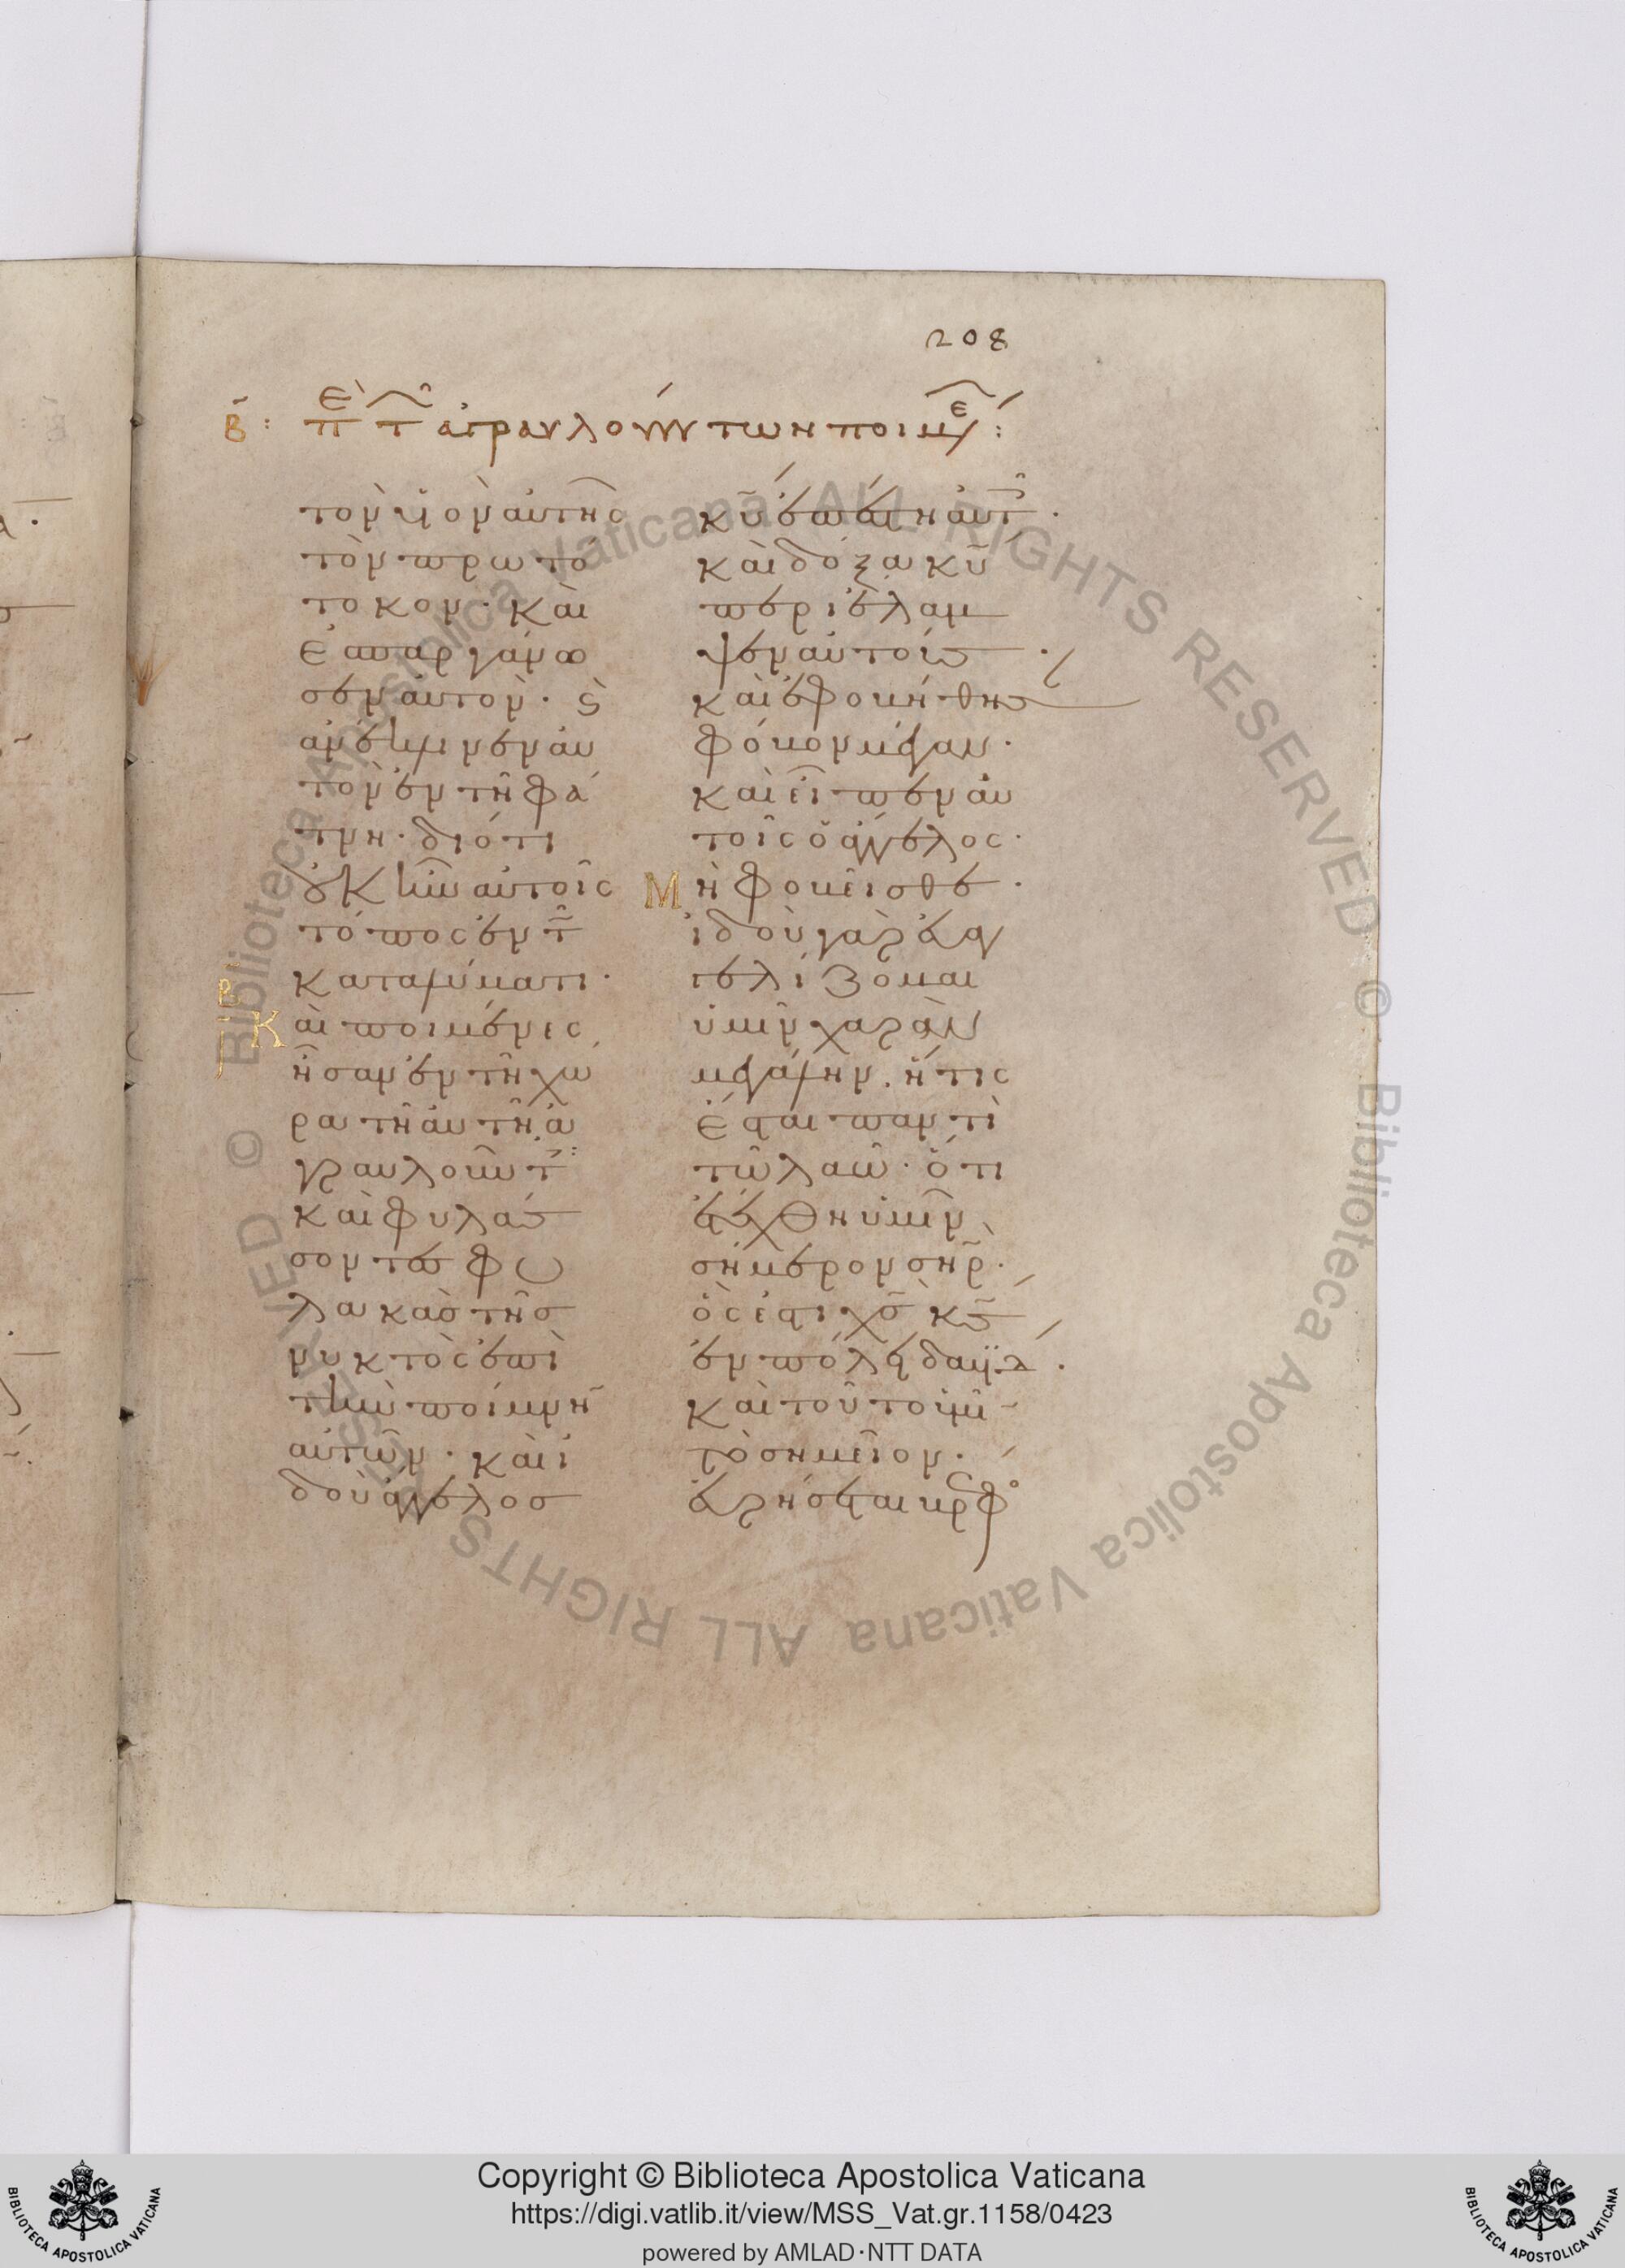 208
Β: Πε τ ἀγραυλούντων ποιμέ:
τὸν υἱὸν αὐτῆς
τὸν πρωτό
τοκον· καὶ
ἐσπαργάνω
σεν αὐτὸν· ϗ
ἀνέκλινεν αὐ
τὸν ἐν τῆ φά
τνη· διότι
οὐκ ἦν αὐτοῖς
τόπος ἐν τ
καταλύματι·
β Καὶ ποιμένες
ἦσαν ἐν τῆ χώ
ρα τῆ αὐτῆ ἀ
γραυλοῦντ
καὶ φυλάσ
σοντες φυ
λακὰς τῆς
νυκτὸς ἐπὶ
τὴν ποίμνη
αὐτῶν· καὶ ἰ
δοὺ ἄγγελος
κυ ἐπέστη αὐτ·
καὶ δόξα κυ
περιέλαμ
ψεν αὐτοὺσ·
καὶ ἐφοβήθησ
φόβον μέγαν·
καὶ εἶπεν αὐ
τοῖς ὁ ἄγγελος·
Μὴ φοβεῖσθε·
ἰδοὺ γὰρ εὐαγ
γελίζομαι
ὑμῖν χαρὰν
μεγάλην. ἥτις
ἔσται παντὶ
τῶ λαῶ· ὅτι
ἐτέχθη ὑμῖν
σήμερον σηρ·
ὅς ἐστι χσ κσ
ἐν πόλει δαυϊδ·
καὶ τοῦτο ὑμῖ
τὸ σημεῖον·
εὑρήσεται βρεφο
Copyright © Biblioteca Apostolica Vaticana
https://digi.vatlib.it/view/MSS_Vat.gr.1158/0423
powered by AMLAD·NTT DATA
BIBLIOTECA APOSTOLICA VATICANA
BIBLIOTECA APOSTOLICA VATICANA
© Biblioteca Apostolica Vaticana ALL RIGHTS RESERVED
© Biblioteca Apostolica Vaticana ALL RIGHTS RESERVED